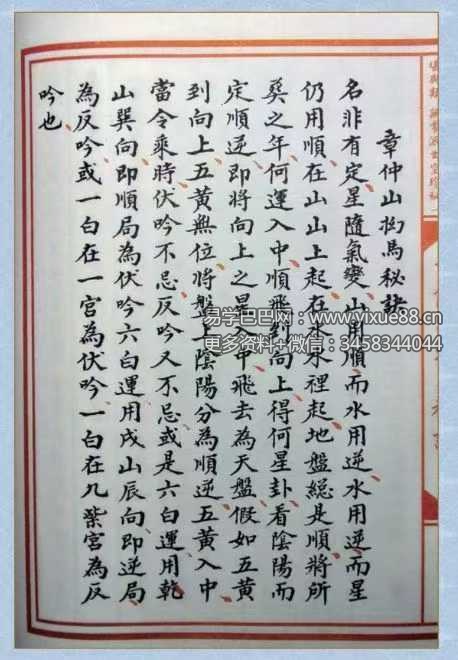 章仲山抝馬秘訣
名非有定星隨氣變山用順而水用逆水用逆而星
仍用順在山山上起在水水裡起地盤總是順將所
葵之年何運入中順飛到向上得何星卦看陰陽而
定順逆即將向上之星入中飛去為天盤假如五黃
到向上五黃無位將盤上陰陽分為順逆五黃入中
當令乘時伏吟不忌反吟又不忌或是六白運用乾
山巽向即順局為伏吟六白運用戌山辰向即逆局
為反吟或一白在一宮為伏吟一白在九紫宮為反
吟也
易学巴巴网：www.yixue88.cn
更多资料+微信：3458344044